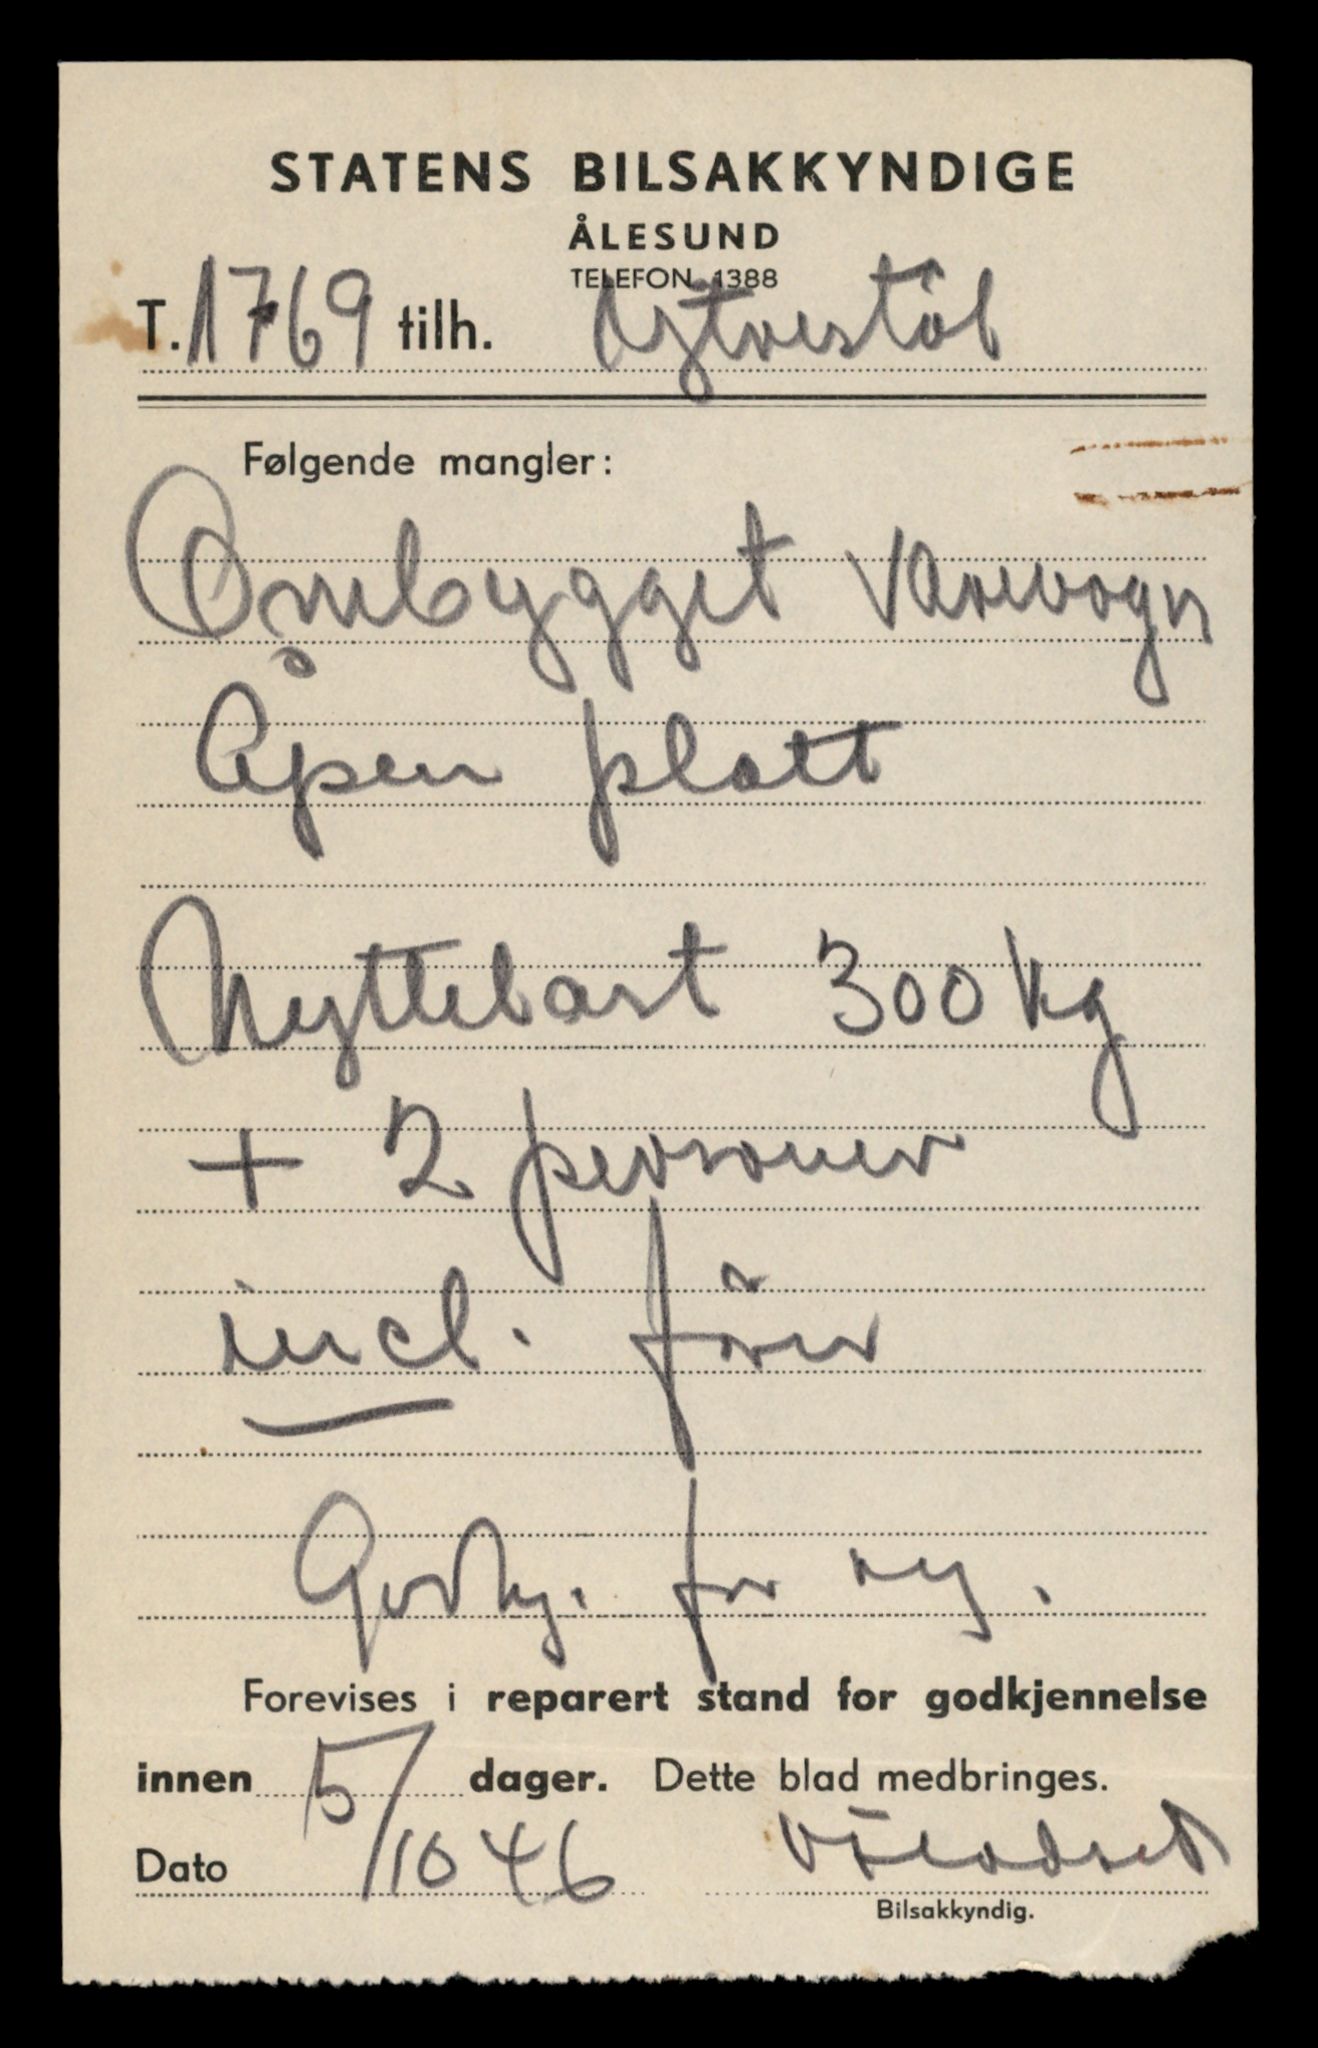 STATENS BILSAKKYNDIGE
ÅLESUND
TELEFON 1388
T. 1769 tilh.
Følgende mangler:
Ombygget Varevogn
Åpen platt
Nyttelast 300 kg
+ 2 personer
incl. förer
Godkj. for reg.
Forevises i reparert stand for godkjennelse
innen dager. Dette blad medbringes.
Dato 5/10 46
Bilsakkyndig.